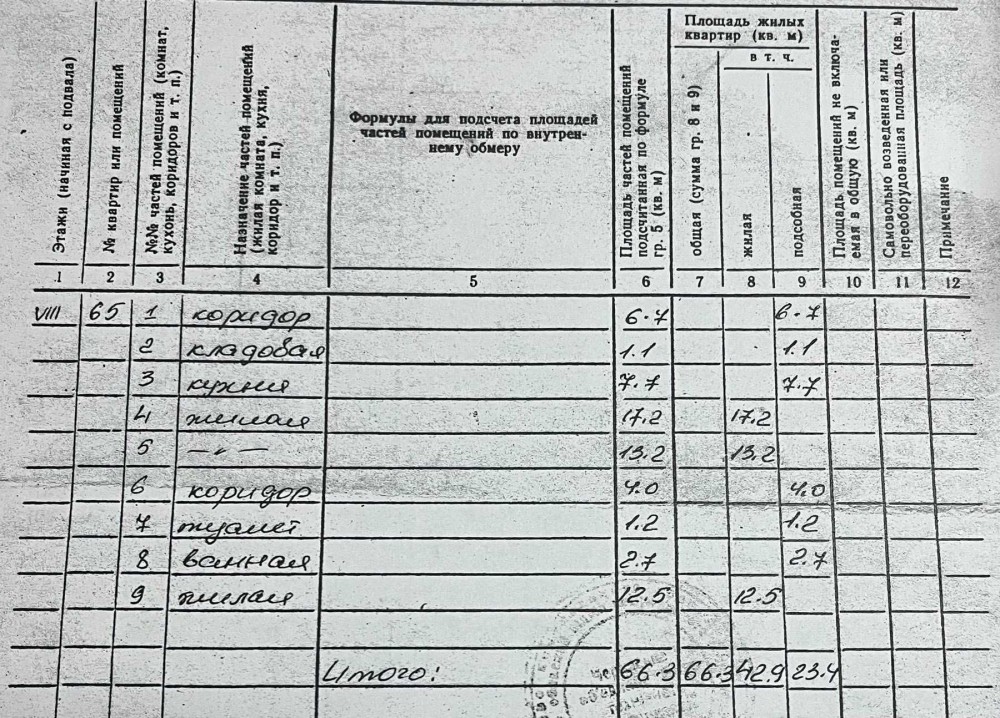 Этажи (начиная с подвала)
№ квартир или помещений
№№ частей помещений (комнат,
кухонь, коридоров и т. п.)
Назначение частей помещений
(жилая комната, кухня,
коридор и т. п.)
Формулы для подсчета площадей
частей помещений по внутрен-
нему обмеру
Площадь частей помещений
подсчитанная по формуле
гр. 5 (кв. м)
Площадь жилых
квартир (кв. м)
общая (сумма гр. 8 и 9)
в т. ч.
жилая
подсобная
Площадь помещений не включа-
емая в общую (кв. м)
Самовольно возведенная или
переоборудованная площадь (кв. м)
Примечание
1 2 3 4 5 6 7 8 9 10 11 12
VIII 65 1 коридор 6.7 6.7
2 кладовая 1.1 1.1
3 кухня 7.7 7.7
4 жилая 17.2 17.2
5 —„— 13.2 13.2
6 коридор 4.0 4.0
7 туалет 1.2 1.2
8 ванная 2.7 2.7
9 жилая 12.5 12.5
Итого: 66.3 66.3 42.9 23.4